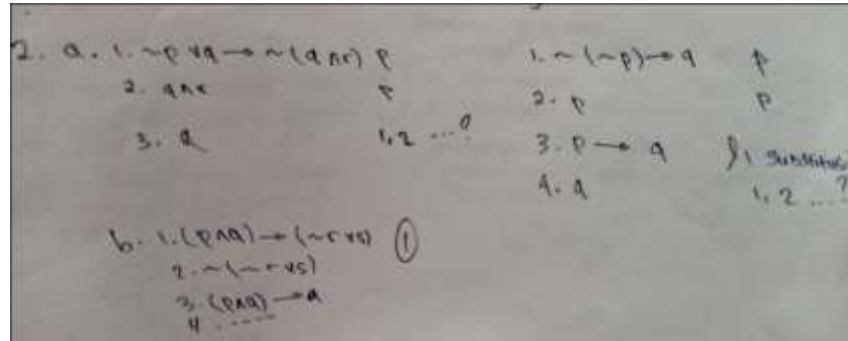 2. a. 1. ~p ∨ q → ~(q ∧ r) P
2. q ∧ r P
3. q 1,2 ...?
1. ~(~p) → q P
2. p P
3. p → q 1 substitusi
4. q 1, 2 ...?
b. 1. (p ∧ q) → (~r ∨ s) ①
2. ~(~r ∨ s)
3. (p ∧ q) → q
4 .....